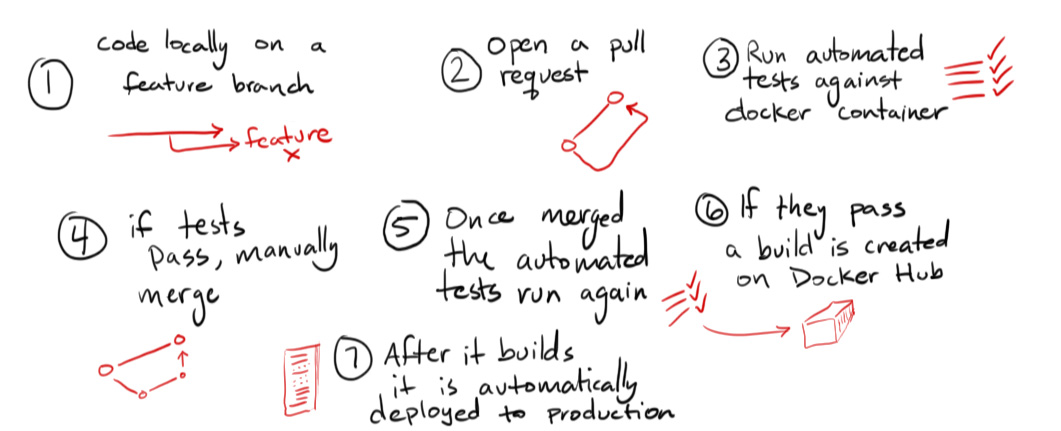 1 code locally on a
feature branch
feature
x
2 Open a pull
request
3 Run automated
tests against
docker container
4 if tests
pass, manually
merge
5 Once merged
the automated
tests run again
6 If they pass
a build is created
on Docker Hub
7 After it builds
it is automatically
deployed to production